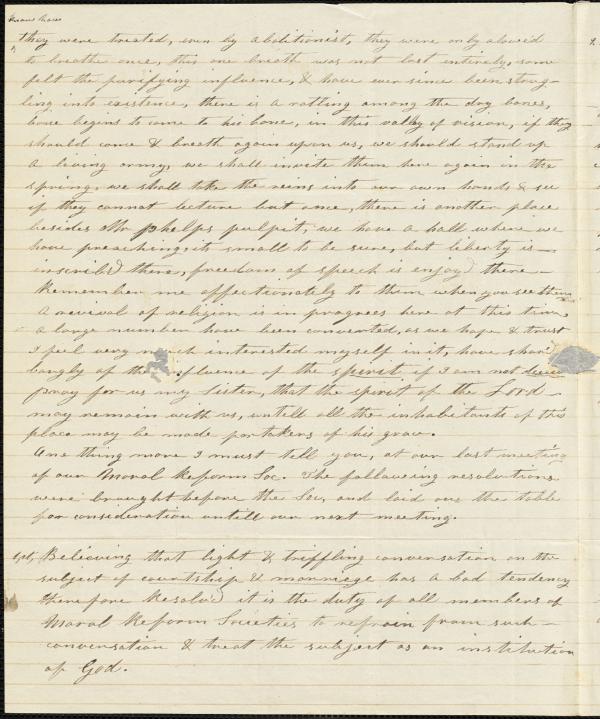 they were treated, even by abolitionist, they were only alowed
to breathe once, this one breath was not lost entirely, some
felt the purifying influence, & have ever since been strug-
ling into existence, there is a ratling among the dry bones,
bone begins to come to his bone, in this vally of vision, if they
should come & breath again upon us, we should stand up
a living army, we shall invite them here again in the
spring, we shall take the reins into our own hands & see
if they cannot lecture but once, there is another place
besides Mr phelps pulpit, we have a hall where we
have preaching, its small to be sure, but liberty is
inscribd there, freedom of speech is enjoyd there
Remember me affectionately to them when you see them
A revival of religion is in progress here at this time,
a large number have been converted, as we hope & trust
I feel very much interested myself in it, have shar'd
largly of the influence of the spirit if I am not
pray for us my Sister, that the spirit of the Lord
may remain with us, untill all the inhabitants of this
place may be made partakers of his grace.
One thing more I must tell you, at our last meeting
of our Moral Reform Soc. The following resolutions
were brought before the Soc, and laid on the table
for consideration untill our next meeting.
1st, Believing that light & triffling conversation on the
subject of courtship & marriege has a bad tendency
therefore Resolvd it is the duty of all members of
Moral Reform Societies to refrain from such
conversation & treat the subject as an institution
of God.